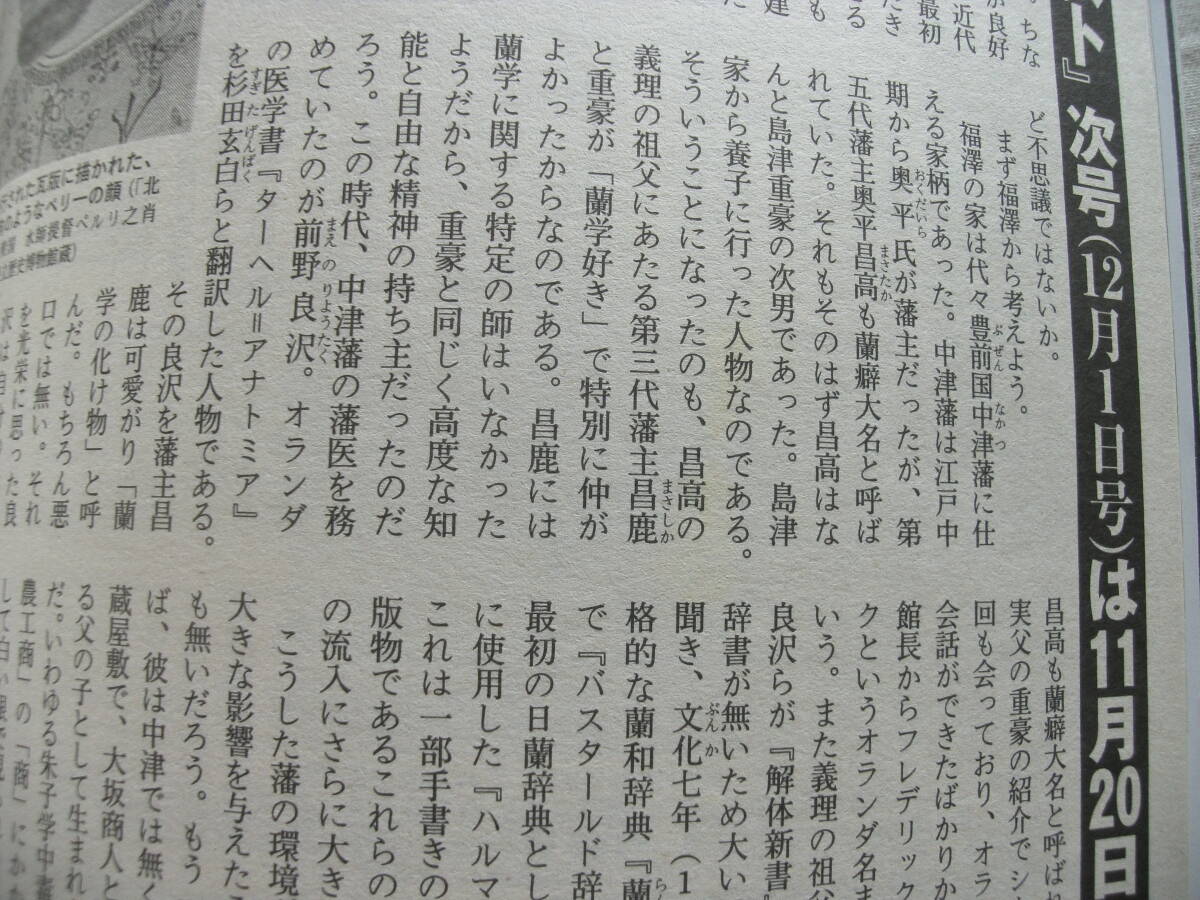 ト』次号(12月1日号)は11月20日
ちな
が良好
近代
最初
たき
る
も
建
た
ど不思議ではないか。
まず福澤から考えよう。
福澤の家は代々豊前国中津藩に仕
える家柄であった。中津藩は江戸中
期から奥平氏が藩主だったが、第
五代藩主奥平昌高も蘭癖大名と呼ば
れていた。それもそのはず昌高はな
んと島津重豪の次男であった。島津
家から養子に行った人物なのである。
そういうことになったのも、昌高の
義理の祖父にあたる第三代藩主昌鹿
と重豪が「蘭学好き」で特別に仲が
よかったからなのである。昌鹿には
蘭学に関する特定の師はいなかった
ようだから、重豪と同じく高度な知
能と自由な精神の持ち主だったのだ
ろう。この時代、中津藩の藩医を務
めていたのが前野良沢。オランダ
の医学書『ターヘル=アナトミア』
を杉田玄白らと翻訳した人物である。
その良沢を藩主昌
鹿は可愛がり「蘭
学の化け物」と呼
んだ。もちろん悪
口では無い。それ
を光栄に思った良
された瓦版に描かれた、
のようなペリーの顔(「北
水師提督ペルリ之肖
歴史博物館蔵)
昌高も蘭癖大名と呼ばれ
実父の重豪の紹介でシ
回も会っており、オラ
会話ができたばかりか
館長からフレデリック
クというオランダ名ま
いう。また義理の祖父
良沢らが『解体新書』
辞書が無いため大い
聞き、文化七年(1
格的な蘭和辞典『蘭
で『バスタールド辞
最初の日蘭辞典とし
に使用した『ハルマ
これは一部手書きの
版物であるこれらの
の流入にさらに大き
こうした藩の環境
大きな影響を与えたこ
も無いだろう。もう
ば、彼は中津では無く
蔵屋敷で、大坂商人と
る父の子として生まれ
だ。いわゆる朱子学中毒
農工商」の「商」にかか